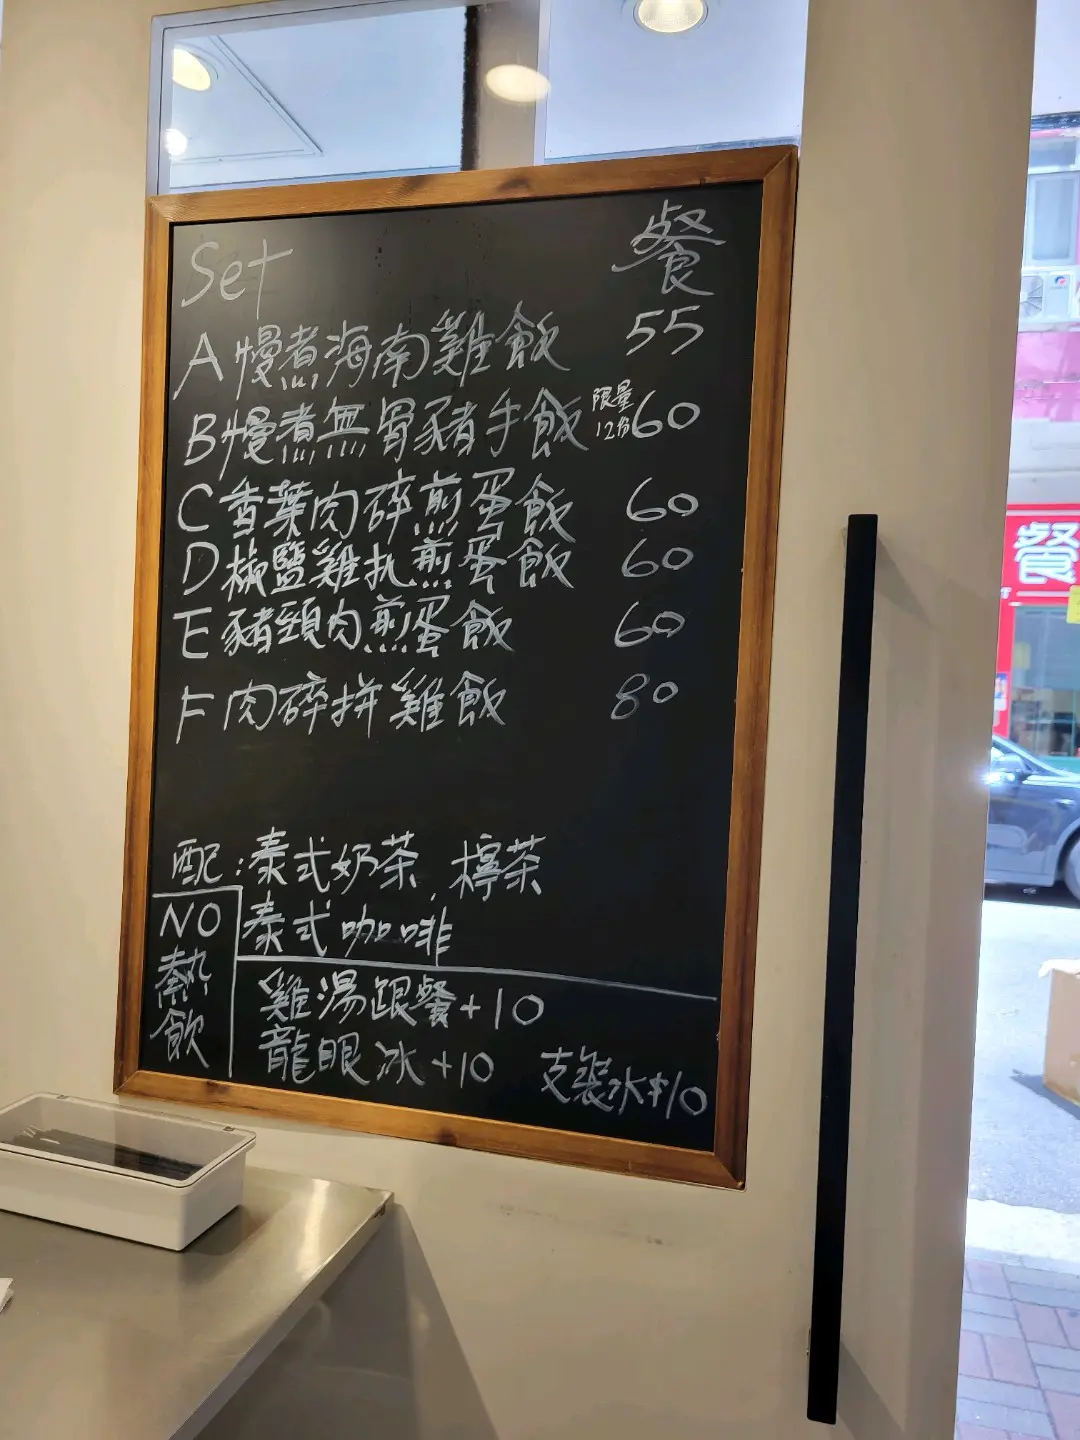 Set 餐
A 慢煮海南雞飯 55
B 慢煮無骨豬手飯 限量12份 60
C 香葉肉碎煎蛋飯 60
D 椒鹽雞扒煎蛋飯 60
E 豬頸肉煎蛋飯 60
F 肉碎拼雞飯 80
配:泰式奶茶,檸茶
泰式咖啡
NO
熱
飲
雞湯跟餐+10
龍眼冰+10
支裝水+10
餐